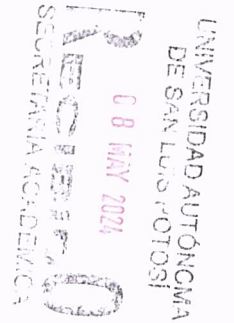 UNIVERSIDAD AUTÓNOMA
DE SAN LUIS POTOSÍ
08 MAY 2024
RECIBIDO
SECRETARIA ACADEMICA